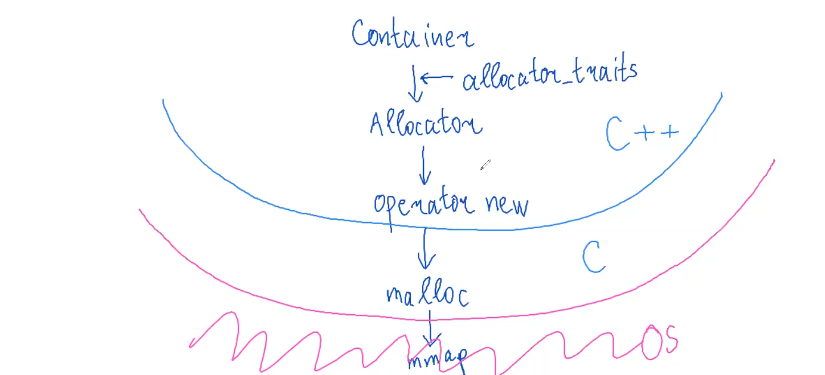 Container
allocator_traits
Allocator
C++
operator new
C
malloc
OS
mmap